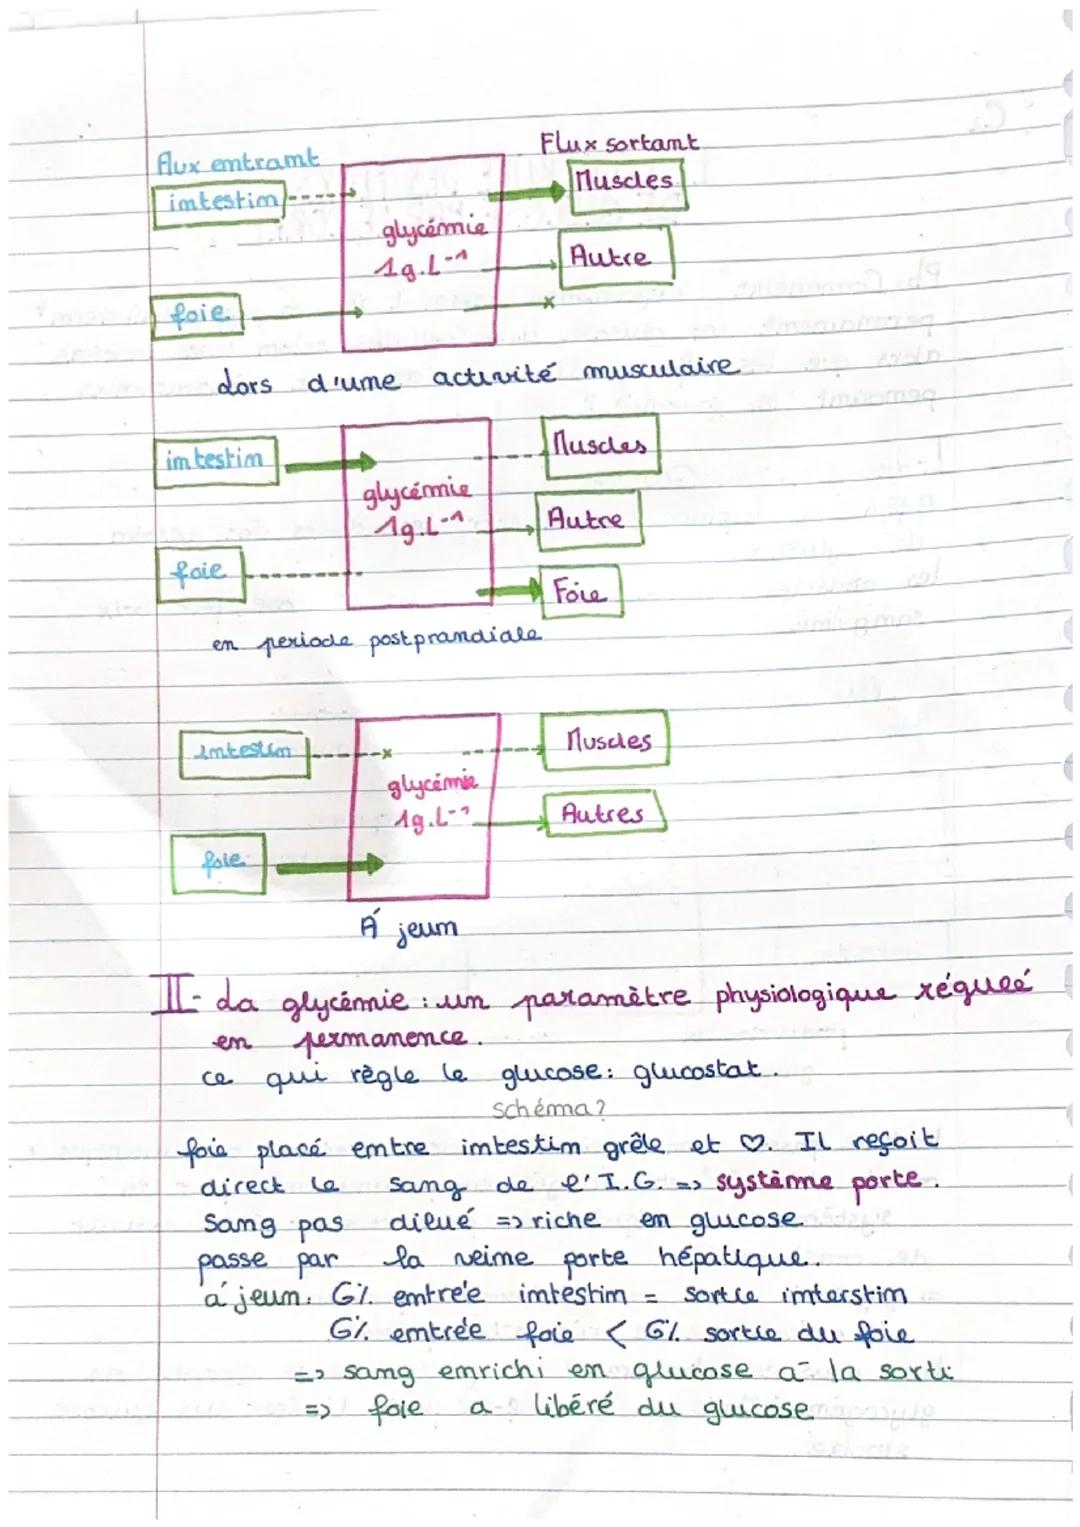 Flux entrant
Flux sortant
intestin
Muscles
glycémie
1g.L-1
Autre
foie
Lors d'une activité musculaire
intestin
Muscles
glycémie
1g.L-1
Autre
foie
Foie
en periode postprandiale
intestin
Muscles
glycémie
1g.L-1
Autres
foie
Á jeun
II- La glycémie : un paramètre physiologique réguleé
en permanence.
ce qui règle le glucose: glucostat.
schéma?
foie placé entre intestin grêle et ♡. Il reçoit
direct le sang de l'I.G. => système porte.
Sang pas dilué => riche en glucose
passe par la veine porte hépatique.
á jeun: G% entrée intestin = sortie interstin
G% entrée foie < G% sortie du foie
=> sang enrichi en glucose a la sorti
=> foie a libéré du glucose